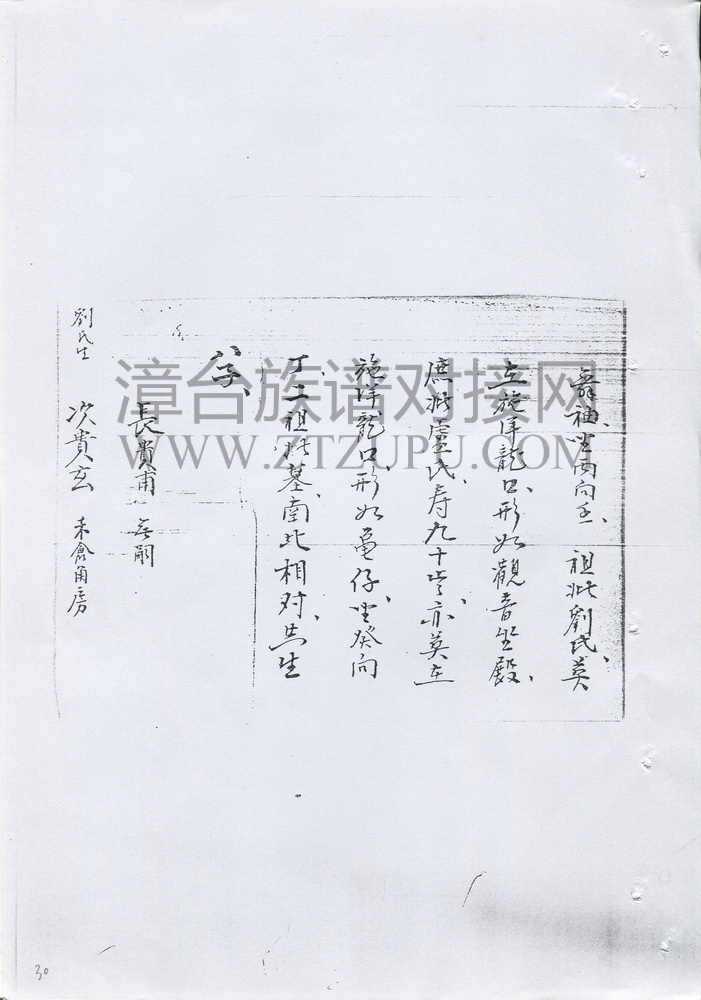 舞袖、坐丙向壬、祖妣劉氏、葬
在施洋龍口、形如觀音坐殿、
庶妣盧氏、寿九十歲、亦葬在
施洋龍口、形如龟仔、坐癸向
丁、二祖妣墓、南北相对、共生
八子、
長貴甫 無嗣
劉氏生 次貴玄 未倉角房
漳台族谱对接网
WWW.ZTZUPU.COM
30